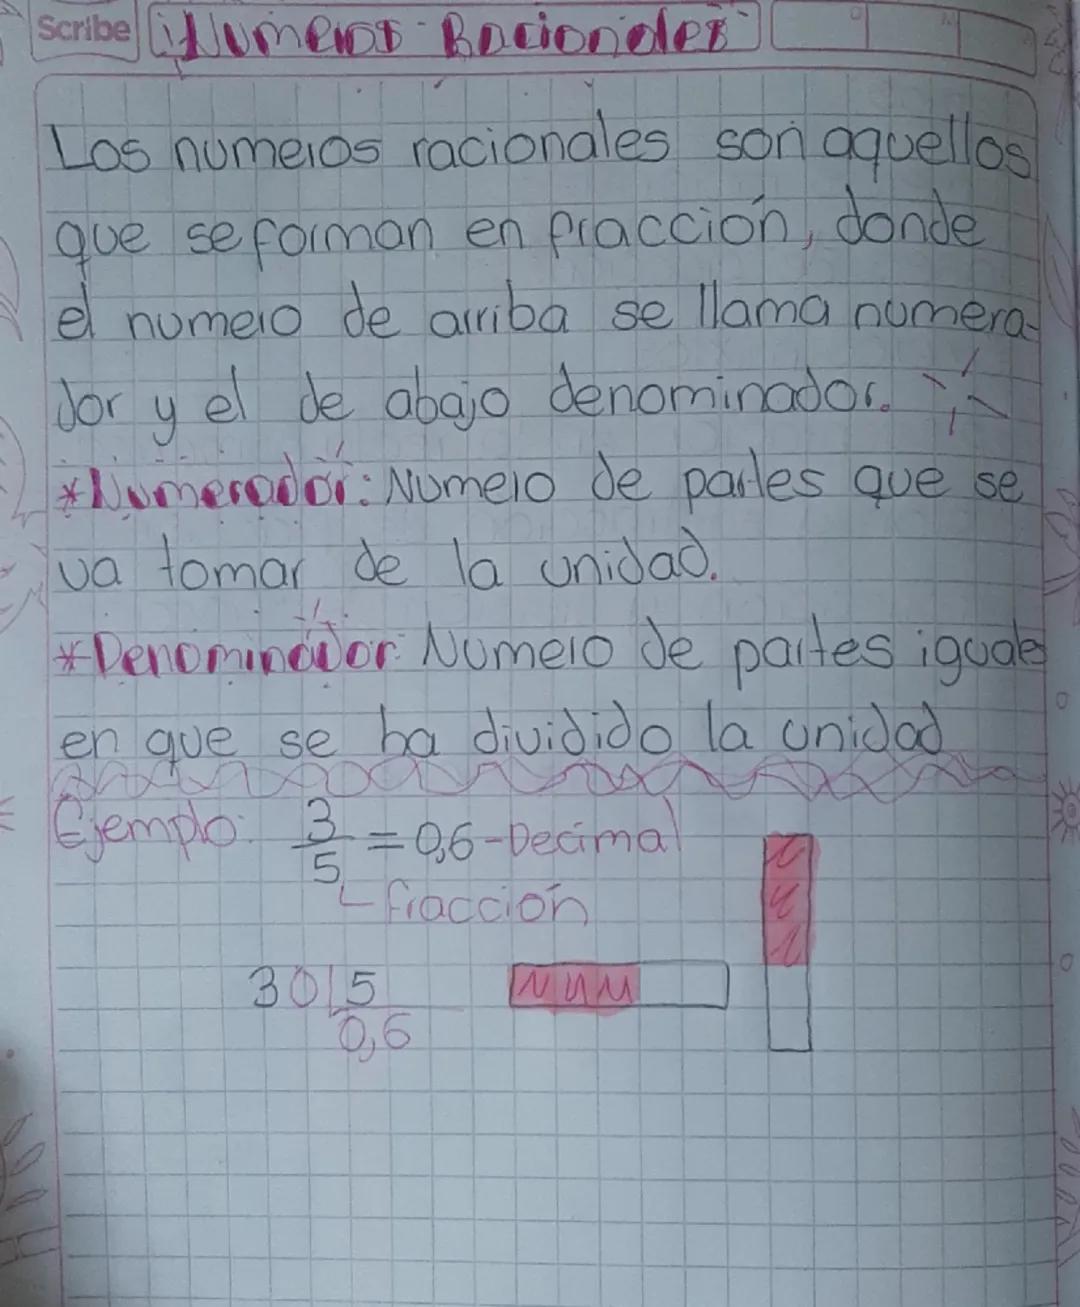 Scribe
Numeros Racionales
Los numeros racionales son aquellos
que se forman en fracción, donde
el numero de arriba se llama numera-
dor y el de abajo denominador.
*Numerador: Numero de partes que se
va tomar de la unidad.
*Denominador: Numero de partes iguales
en que se ha dividido la unidad
Ejemplo: 3/5 = 0,6 - Decimal
fracción
30 5
0,6